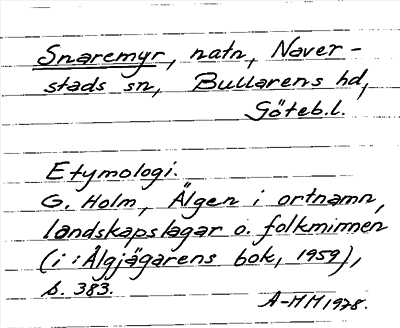 Snaremyr, natn, Naver-
stads sn, Bullarens hd,
Göteb.l.
Etymologi.
G. Holm, Älgen i ortnamn,
landskapslagar o. folkminnen
(i: Älgjägarens bok, 1959),
s. 383.
A-MM 1978.